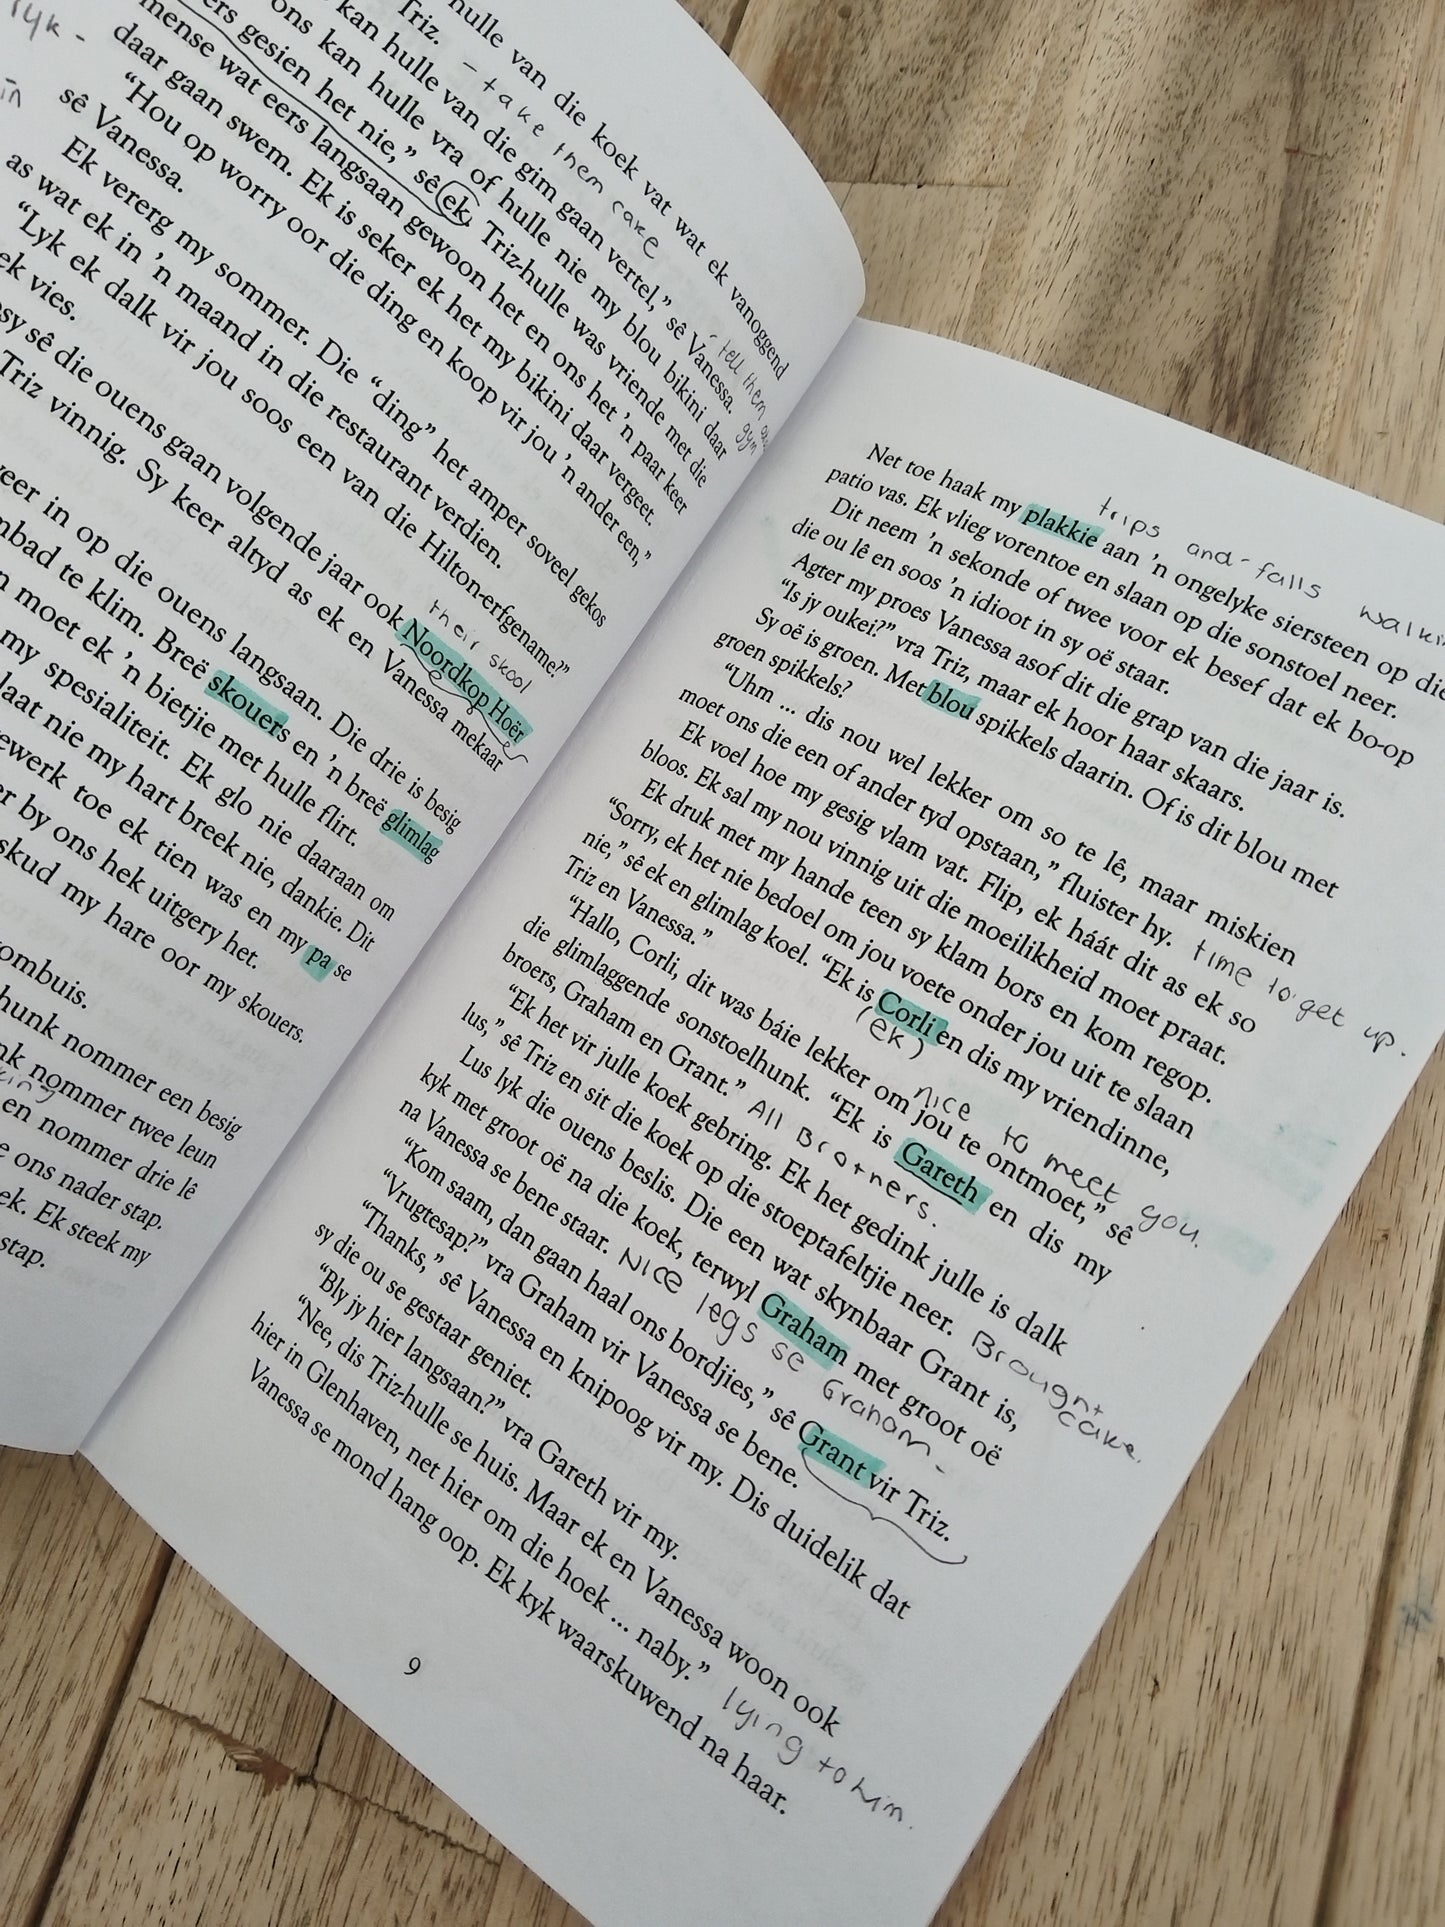 ryk -
in
hulle van die koek vat wat ek vanoggend
Triz.
- take them cake
kan hulle van die gim gaan vertel,” sê Vanessa.
- tell them
gym
ons kan hulle vra of hulle nie my blou bikini daar
ers gesien het nie,” sê ek. Triz-hulle was vriende met die
mense wat eers langsaan gewoon het en ons het ’n paar keer
daar gaan swem. Ek is seker ek het my bikini daar vergeet.
“Hou op worry oor die ding en koop vir jou ’n ander een,”
sê Vanessa.
Ek vererg my sommer. Die “ding” het amper soveel gekos
as wat ek in ’n maand in die restaurant verdien.
“Lyk ek dalk vir jou soos een van die Hilton-erfgename?”
ek vies.
their skool
sy sê die ouens gaan volgende jaar ook Noordkop Hoër
Triz vinnig. Sy keer altyd as ek en Vanessa mekaar
eer in op die ouens langsaan. Die drie is besig
mbad te klim. Breë skouers en ’n breë glimlag
n moet ek ’n bietjie met hulle flirt.
my spesialiteit. Ek glo nie daaraan om
laat nie my hart breek nie, dankie. Dit
ewerk toe ek tien was en my pa se
er by ons hek uitgery het.
skud my hare oor my skouers.
ombuis.
hunk nommer een besig
nk nommer twee leun
en nommer drie lê
e ons nader stap.
ek. Ek steek my
stap.
trips and falls
Net toe haak my plakkie aan ’n ongelyke siersteen op die
patio vas. Ek vlieg vorentoe en slaan op die sonstoel neer.
Dit neem ’n sekonde of twee voor ek besef dat ek bo-op
die ou lê en soos ’n idioot in sy oë staar.
Agter my proes Vanessa asof dit die grap van die jaar is.
“Is jy oukei?” vra Triz, maar ek hoor haar skaars.
Sy oë is groen. Met blou spikkels daarin. Of is dit blou met
groen spikkels?
“Uhm ... dis nou wel lekker om so te lê, maar miskien
moet ons die een of ander tyd opstaan,” fluister hy.
time to get up.
Ek voel hoe my gesig vlam vat. Flip, ek háát dit as ek so
bloos. Ek sal my nou vinnig uit die moeilikheid moet praat.
Ek druk met my hande teen sy klam bors en kom regop.
“Sorry, ek het nie bedoel om jou voete onder jou uit te slaan
nie,” sê ek en glimlag koel. “Ek is Corli en dis my vriendinne,
(ek)
Triz en Vanessa.”
nice to meet you.
“Hallo, Corli, dit was báie lekker om jou te ontmoet,” sê
die glimlaggende sonstoelhunk. “Ek is Gareth en dis my
broers, Graham en Grant.”
All Brothers.
“Ek het vir julle koek gebring. Ek het gedink julle is dalk
lus,” sê Triz en sit die koek op die stoeptafeltjie neer.
Brought cake.
Lus lyk die ouens beslis. Die een wat skynbaar Grant is,
kyk met groot oë na die koek, terwyl Graham met groot oë
na Vanessa se bene staar.
Nice legs se Graham -
“Kom saam, dan gaan haal ons bordjies,” sê Grant vir Triz.
“Vrugtesap?” vra Graham vir Vanessa se bene.
“Thanks,” sê Vanessa en knipoog vir my. Dis duidelik dat
sy die ou se gestaar geniet.
“Bly jy hier langsaan?” vra Gareth vir my.
“Nee, dis Triz-hulle se huis. Maar ek en Vanessa woon ook
hier in Glenhaven, net hier om die hoek ... naby.”
lying to him.
Vanessa se mond hang oop. Ek kyk waarskuwend na haar.
9